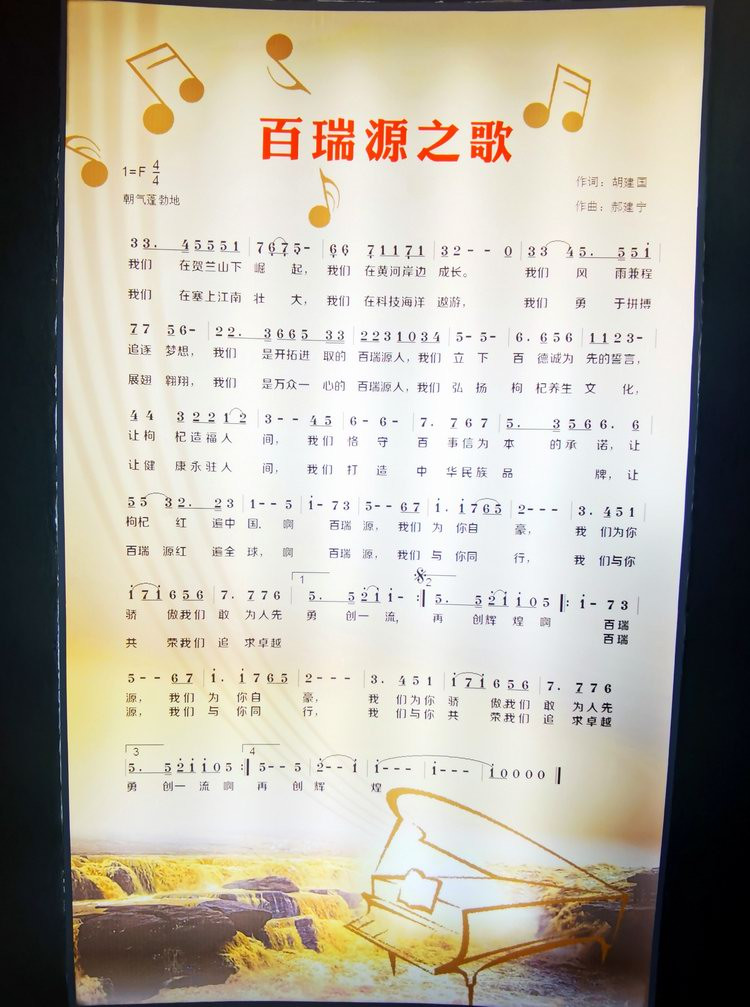 百瑞源之歌
1=F 4/4
作词：胡建国
朝气蓬勃地
作曲：郝建宁
33. 45551 | 7675- | 66 71171 | 32--0 | 33 45. 551
我们 在贺兰山下 崛 起， 我们 在黄河岸边 成长。 我们 风 雨兼程
我们 在塞上江南 壮 大， 我们 在科技海洋 遨游， 我们 勇 于拼搏
77 56- | 22. 3665 33 | 22231034 | 5-5- | 6. 656 | 1123-
追逐 梦想， 我们 是开拓进 取的 百瑞源人，我们 立 下 百 德诚为 先的誓言，
展翅 翱翔， 我们 是万众一 心的 百瑞源人，我们 弘 扬 枸 杞养生 文 化，
44 32212 | 3--45 | 6-6- | 7. 767 | 5. 3566. 6
让枸 杞造福人 间， 我们 恪 守 百 事信为 本 的承 诺，让
让健 康永驻人 间， 我们 打 造 中 华民族 品 牌，让
55 32. 23 | 1--5 | i-73 | 5--67 | i. i765 | 2--- | 3. 451
枸杞 红 遍中国，啊 百瑞 源，我们 为 你自 豪， 我 们为你
百瑞 源红 遍全 球，啊 百瑞 源，我们 与 你同 行， 我 们与你
i7i656 | 7. 776 | 1 5. 52ii- :| 2 5. 52ii05 |: i-73
骄 傲我们 敢 为人先 勇 创一 流， 再 创辉 煌 啊 百瑞
共 荣我们 追 求卓越 百瑞
5--67 | i. i765 | 2--- | 3. 451 | i7i656 | 7. 776
源， 我们 为 你自 豪， 我 们为你 骄 傲我们 敢 为人先
源， 我们 与 你同 行， 我 们与你 共 荣我们 追 求卓越
3 5. 52ii05 :| 4 5--5 | 2--i | i--- | i--- | i0000 ‖
勇 创一 流啊 再 创辉 煌